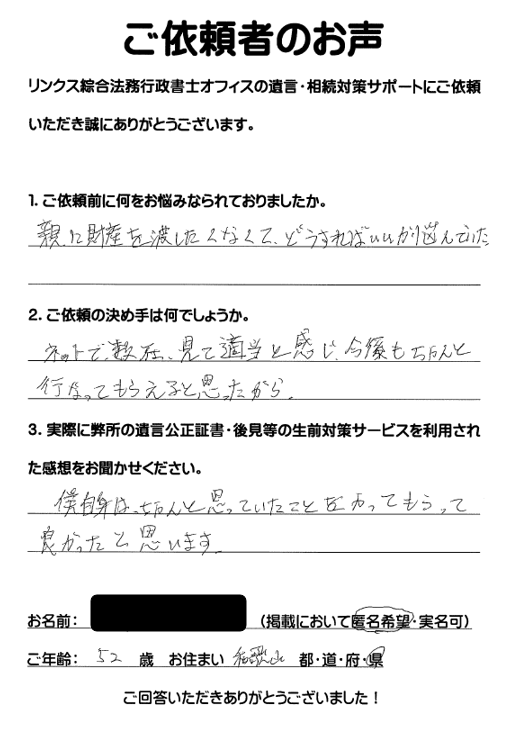 ご依頼者のお声
リンクス綜合法務行政書士オフィスの遺言・相続対策サポートにご依頼
いただき誠にありがとうございます。
1. ご依頼前に何をお悩みなられておりましたか。
親に財産を渡したくなくて、どうすればいいか悩んでいた
2. ご依頼の決め手は何でしょうか。
ネットで、数社、見て適当と感じ、今後もちゃんと
行なってもらえると思ったから。
3. 実際に弊所の遺言公正証書・後見等の生前対策サービスを利用され
た感想をお聞かせください。
僕自身は、ちゃんと思っていたことをやってもらって
良かったと思います。
お名前： （掲載において匿名希望・実名可）
ご年齢： 52 歳 お住まい 和歌山 都・道・府・県
ご回答いただきありがとうございました！